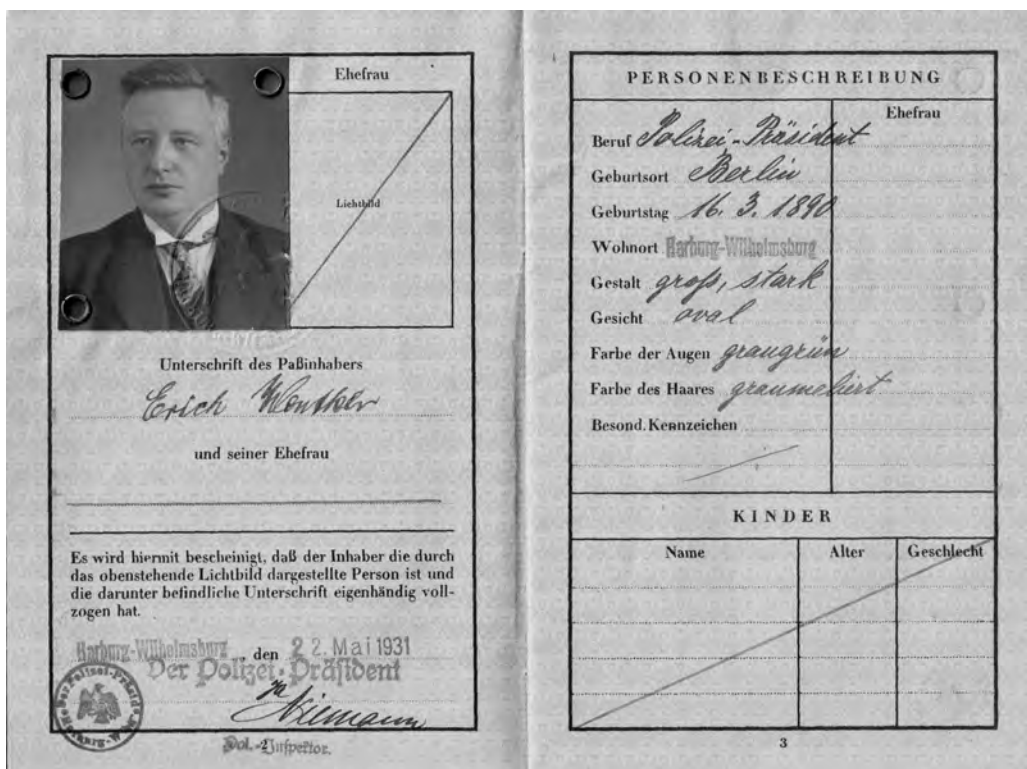 Ehefrau
Lichtbild
Unterschrift des Paßinhabers
Erich Wentker
und seiner Ehefrau
Es wird hiermit bescheinigt, daß der Inhaber die durch
das obenstehende Lichtbild dargestellte Person ist und
die darunter befindliche Unterschrift eigenhändig voll-
zogen hat.
Harburg-Wilhelmsburg, den 22. Mai 1931
Der Polizei-Präsident
Niemann
Pol.-Inspektor.
2
PERSONENBESCHREIBUNG
Ehefrau
Beruf Polizei-Präsident
Geburtsort Berlin
Geburtstag 16. 3. 1890
Wohnort Harburg-Wilhelmsburg
Gestalt groß, stark
Gesicht oval
Farbe der Augen graugrün
Farbe des Haares graumeliert
Besond. Kennzeichen
KINDER
Name Alter Geschlecht
3